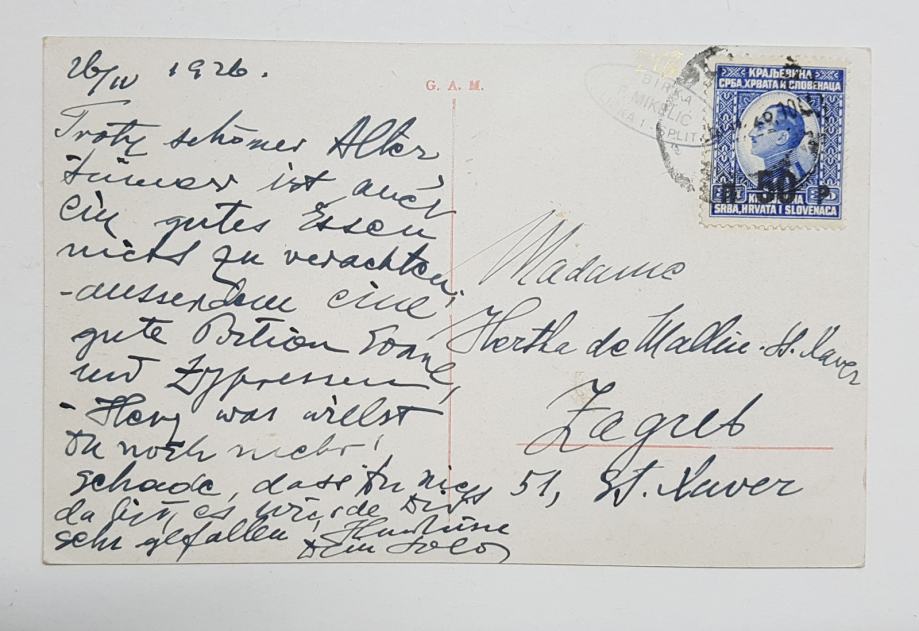 26/IV 1926.
Trotz schöner Alter
tümer ist auch
ein gutes Essen
nicht zu verachten,
- ausserdem eine
gute Portion Sonne
und Zypressen,
- Herz was willst
Du noch mehr!
schade, dass Du nicht
da bist, es würde Dir
sehr gefallen,
Dein
G. A. M.
MIKELIĆ
SPLIT
КРАЉЕВИНА
СРБА, ХРВАТА И СЛОВЕНАЦА
П 50 P
SRBA, HRVATA I SLOVENACA
Madame
Hertha de Mallin - St. Xaver
Zagreb
51, St. Xaver